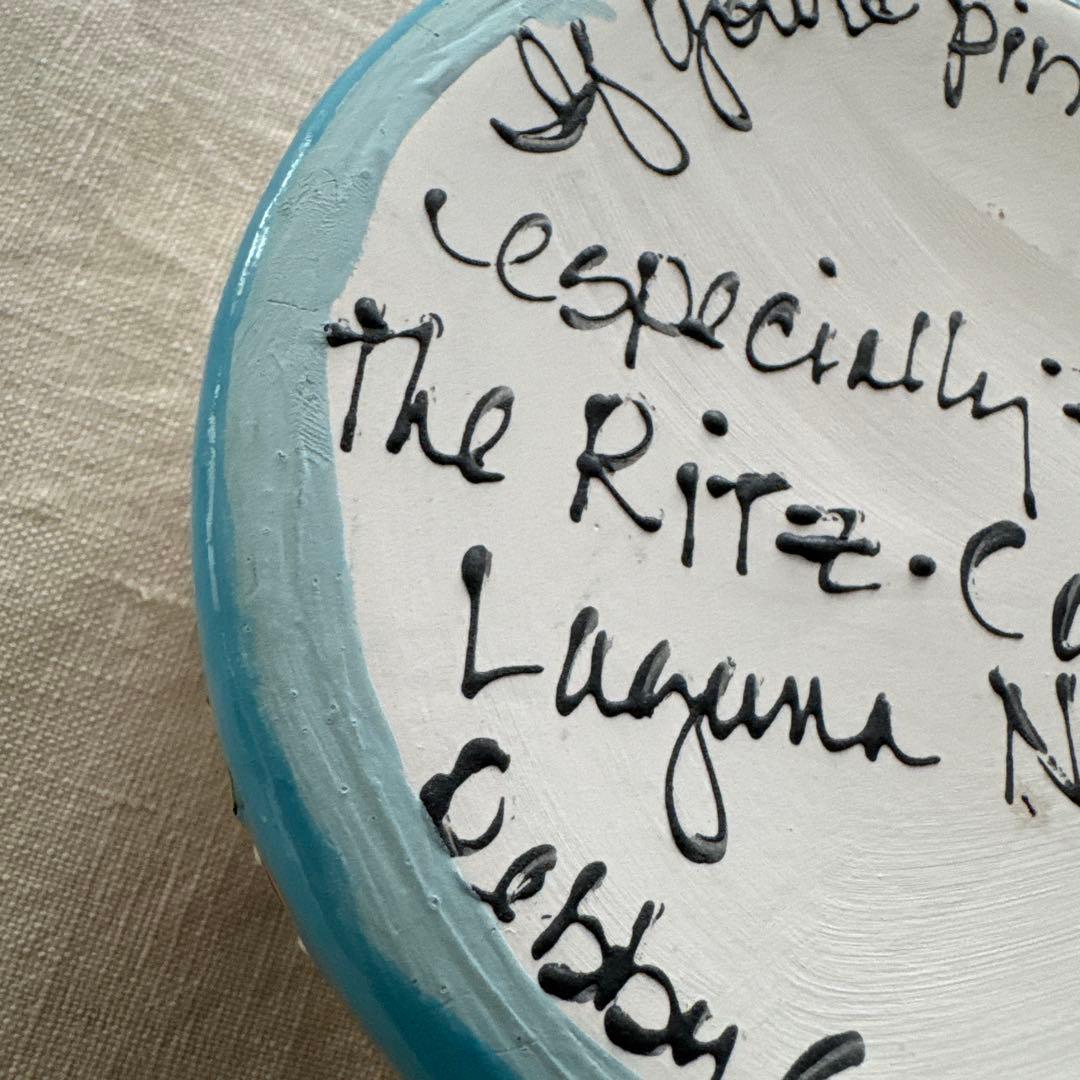 If you're pin
especially
The RiTz·Ca
Laguna N